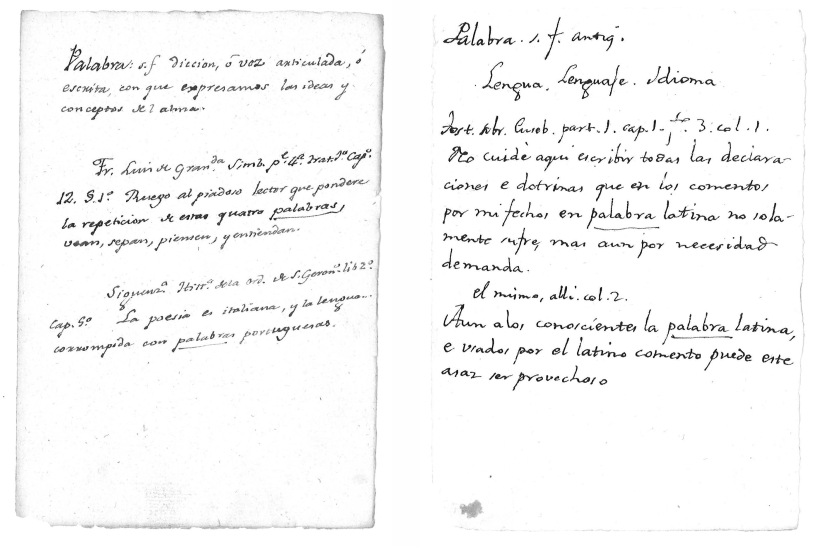 Palabra: s.f diccion, ó voz articulada, ó
escrita, con que expresamos las ideas y
conceptos del alma.
Fr. Luis de Gran.da Simb. p.te 4.a trat. 1.o Cap.o
12. §.1.o Ruego al piadoso lector que pondere
la repeticion de estas quatro palabras,
vean, sepan, piensen, y entiendan.
Siguenz.a Histr.a dela ord. de S. Geron.o lib 2.o
Cap. 5.o La poesia es italiana, y la lengua
corrompida con palabras portuguesas.
Palabra. s. f. antiq.
Lengua. Lenguaje. Idioma
Tost. sobr. Euseb. part. 1. cap. 1. f.o 3. col. 1.
No cuide aqui escribir todas las declara-
ciones e dotrinas que en los comentos
por mi fechos en palabra latina no sola-
mente sufre, mas aun por necesidad
demanda.
el mismo, alli. col. 2.
Aun alos conoscientes la palabra latina,
e usados por el latino comento puede este
asaz ser provechoso